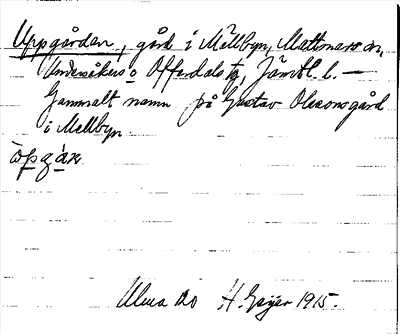 Uppgården, gård i Mellbyn, Mattmars sn,
Undersåkers o Offerdals tg, Jämtl. l. —
Gammalt namn på Gustav Olssonsgård
i Mellbyn
H. Geijer 1915.